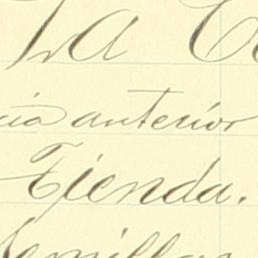 LA C
cia anterior
Tienda.
Semillas